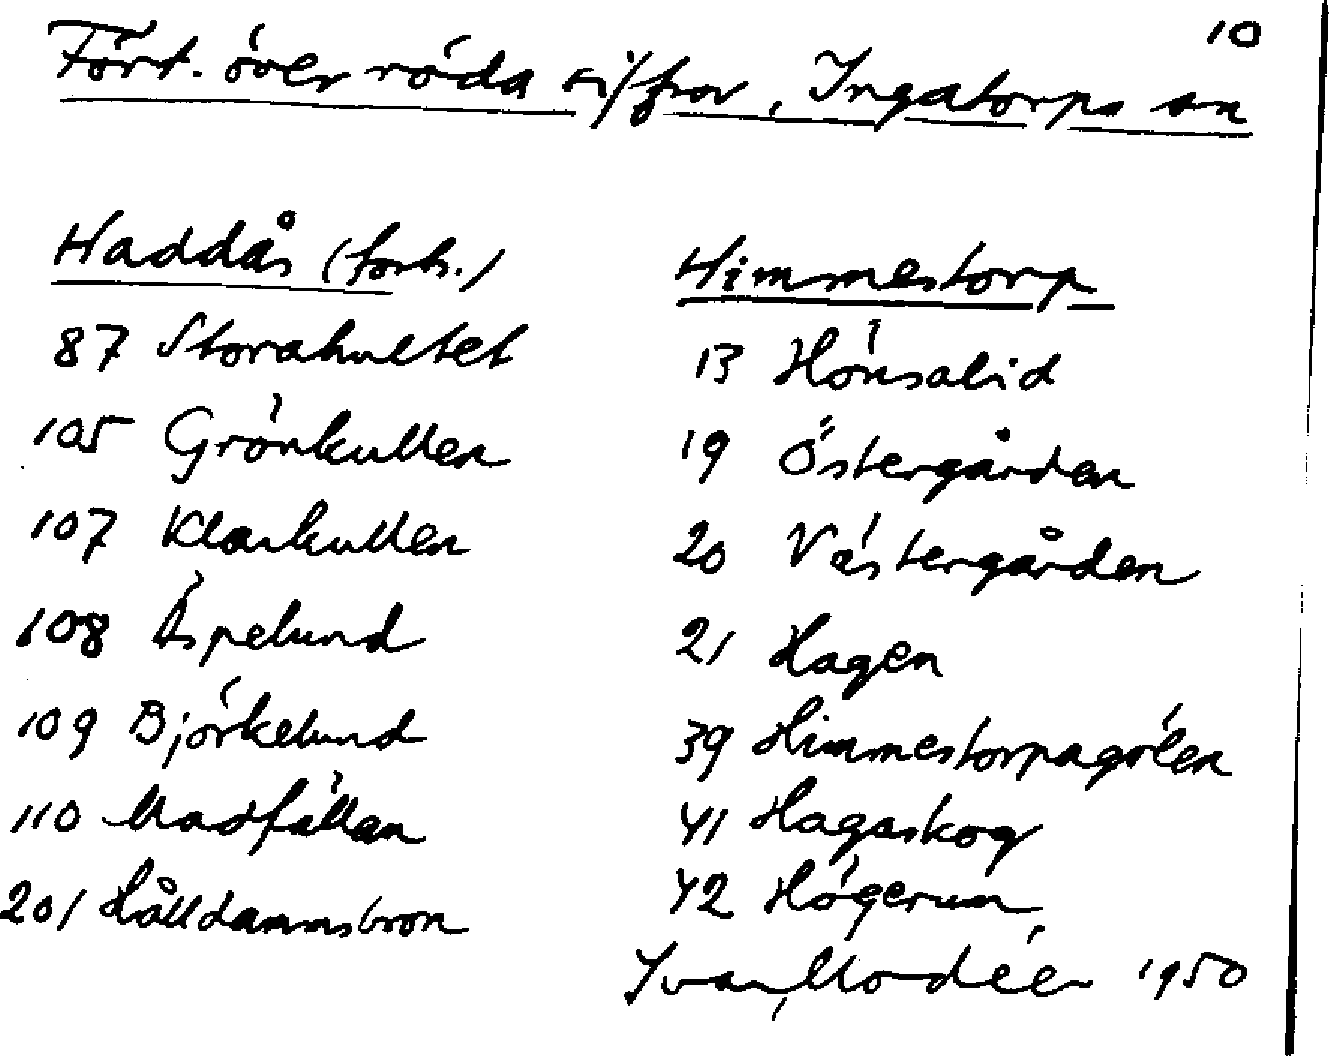 10
Fört. över röda siffror, Ingatorps sn
Haddås (forts.)
87 Storahultet
105 Grönkullen
107 Klarkullen
108 Äspelund
109 Björkelund
110 Madfällan
201 Hålldammsbron
Himmestorp
13 Hönsalid
19 Östergården
20 Västergården
21 Hagen
39 Himmestorpagölen
41 Hagaskog
42 Högerum
Ivar Modéer 1950